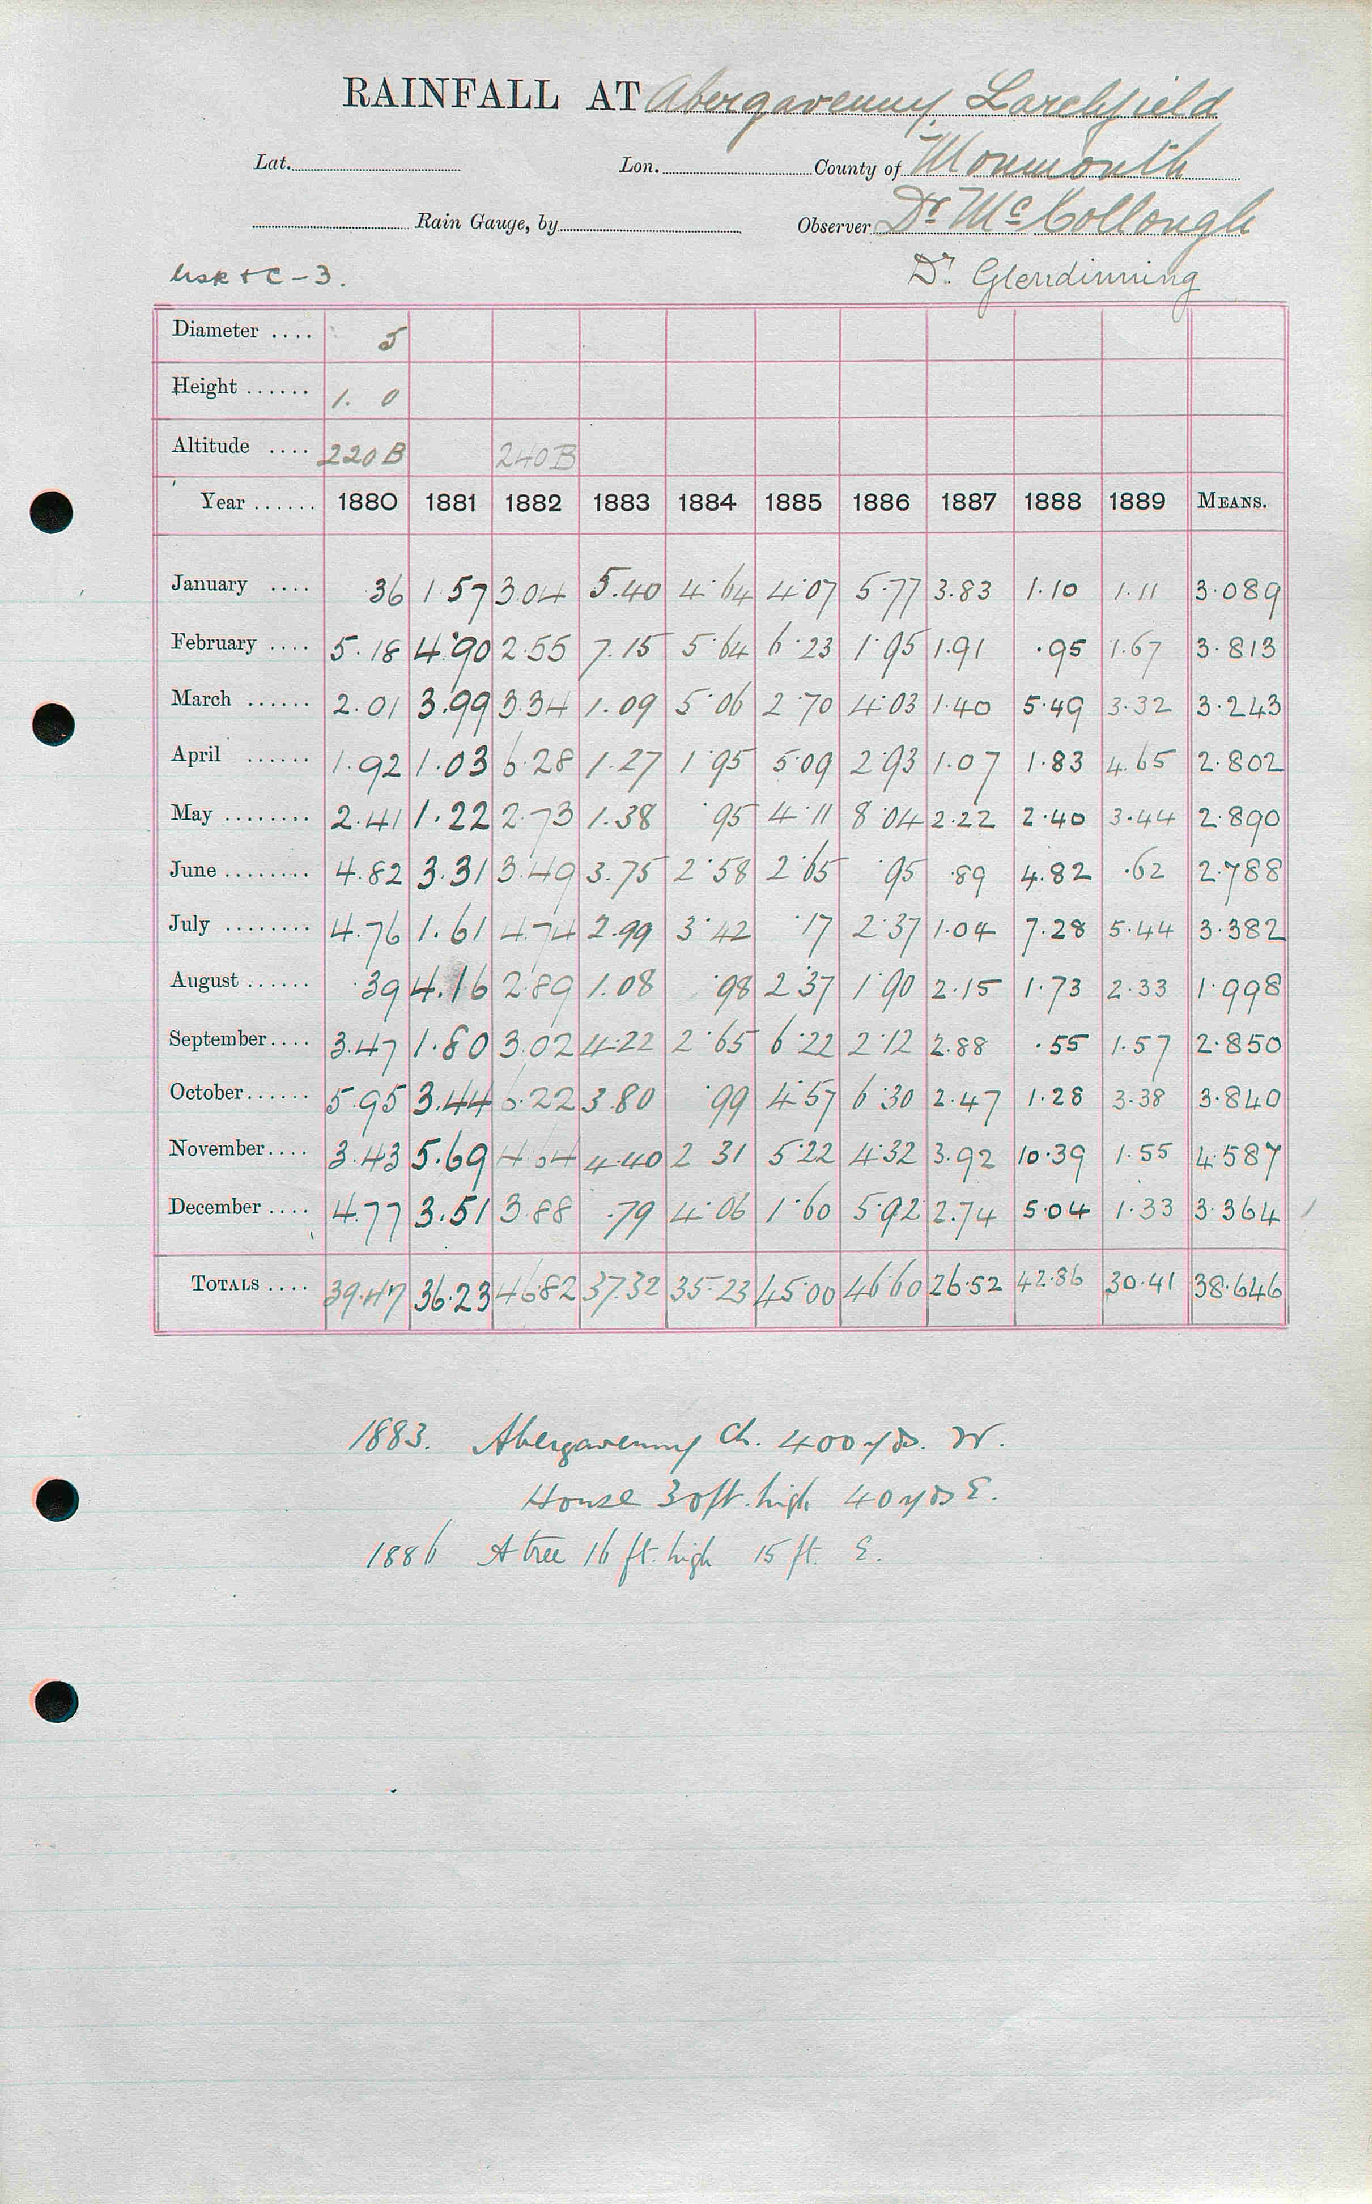 RAINFALL AT Abergavenny, Larchfield
Lat. Lon. County of Monmouth
Rain Gauge, by Observer Dr McCollough
Usk & C - 3. Dr Glendinning
Diameter .... 5
Height ...... 1. 0
Altitude .... 220B 240B
Year ...... 1880 1881 1882 1883 1884 1885 1886 1887 1888 1889 MEANS.
January .... .36 1.57 3.04 5.40 4.64 4.07 5.77 3.83 1.10 1.11 3.089
February .... 5.18 4.90 2.55 7.15 5.64 6.23 1.95 1.91 .95 1.67 3.813
March ...... 2.01 3.99 3.34 1.09 5.06 2.70 4.03 1.40 5.49 3.32 3.243
April ...... 1.92 1.03 6.28 1.27 1.95 5.09 2.93 1.07 1.83 4.65 2.802
May ........ 2.41 1.22 2.73 1.38 .95 4.11 8.04 2.22 2.40 3.44 2.890
June ........ 4.82 3.31 3.49 3.75 2.58 2.65 .95 .89 4.82 .62 2.788
July ........ 4.76 1.61 4.74 2.99 3.42 .17 2.37 1.04 7.28 5.44 3.382
August ...... .39 4.16 2.89 1.08 .98 2.37 1.90 2.15 1.73 2.33 1.998
September .... 3.47 1.80 3.02 4.22 2.65 6.22 2.12 2.88 .55 1.57 2.850
October ...... 5.95 3.44 6.22 3.80 .99 4.57 6.30 2.47 1.28 3.38 3.840
November .... 3.43 5.69 4.64 4.40 2.31 5.22 4.32 3.92 10.39 1.55 4.587
December .... 4.77 3.51 3.88 .79 4.06 1.60 5.92 2.74 5.04 1.33 3.364
TOTALS .... 39.47 36.23 46.82 37.32 35.23 45.00 46.60 26.52 42.86 30.41 38.646
1883. Abergavenny Ch. 400 yds. W.
House 30ft. high 40 yds E.
1886 A tree 16 ft. high 15 ft. E.